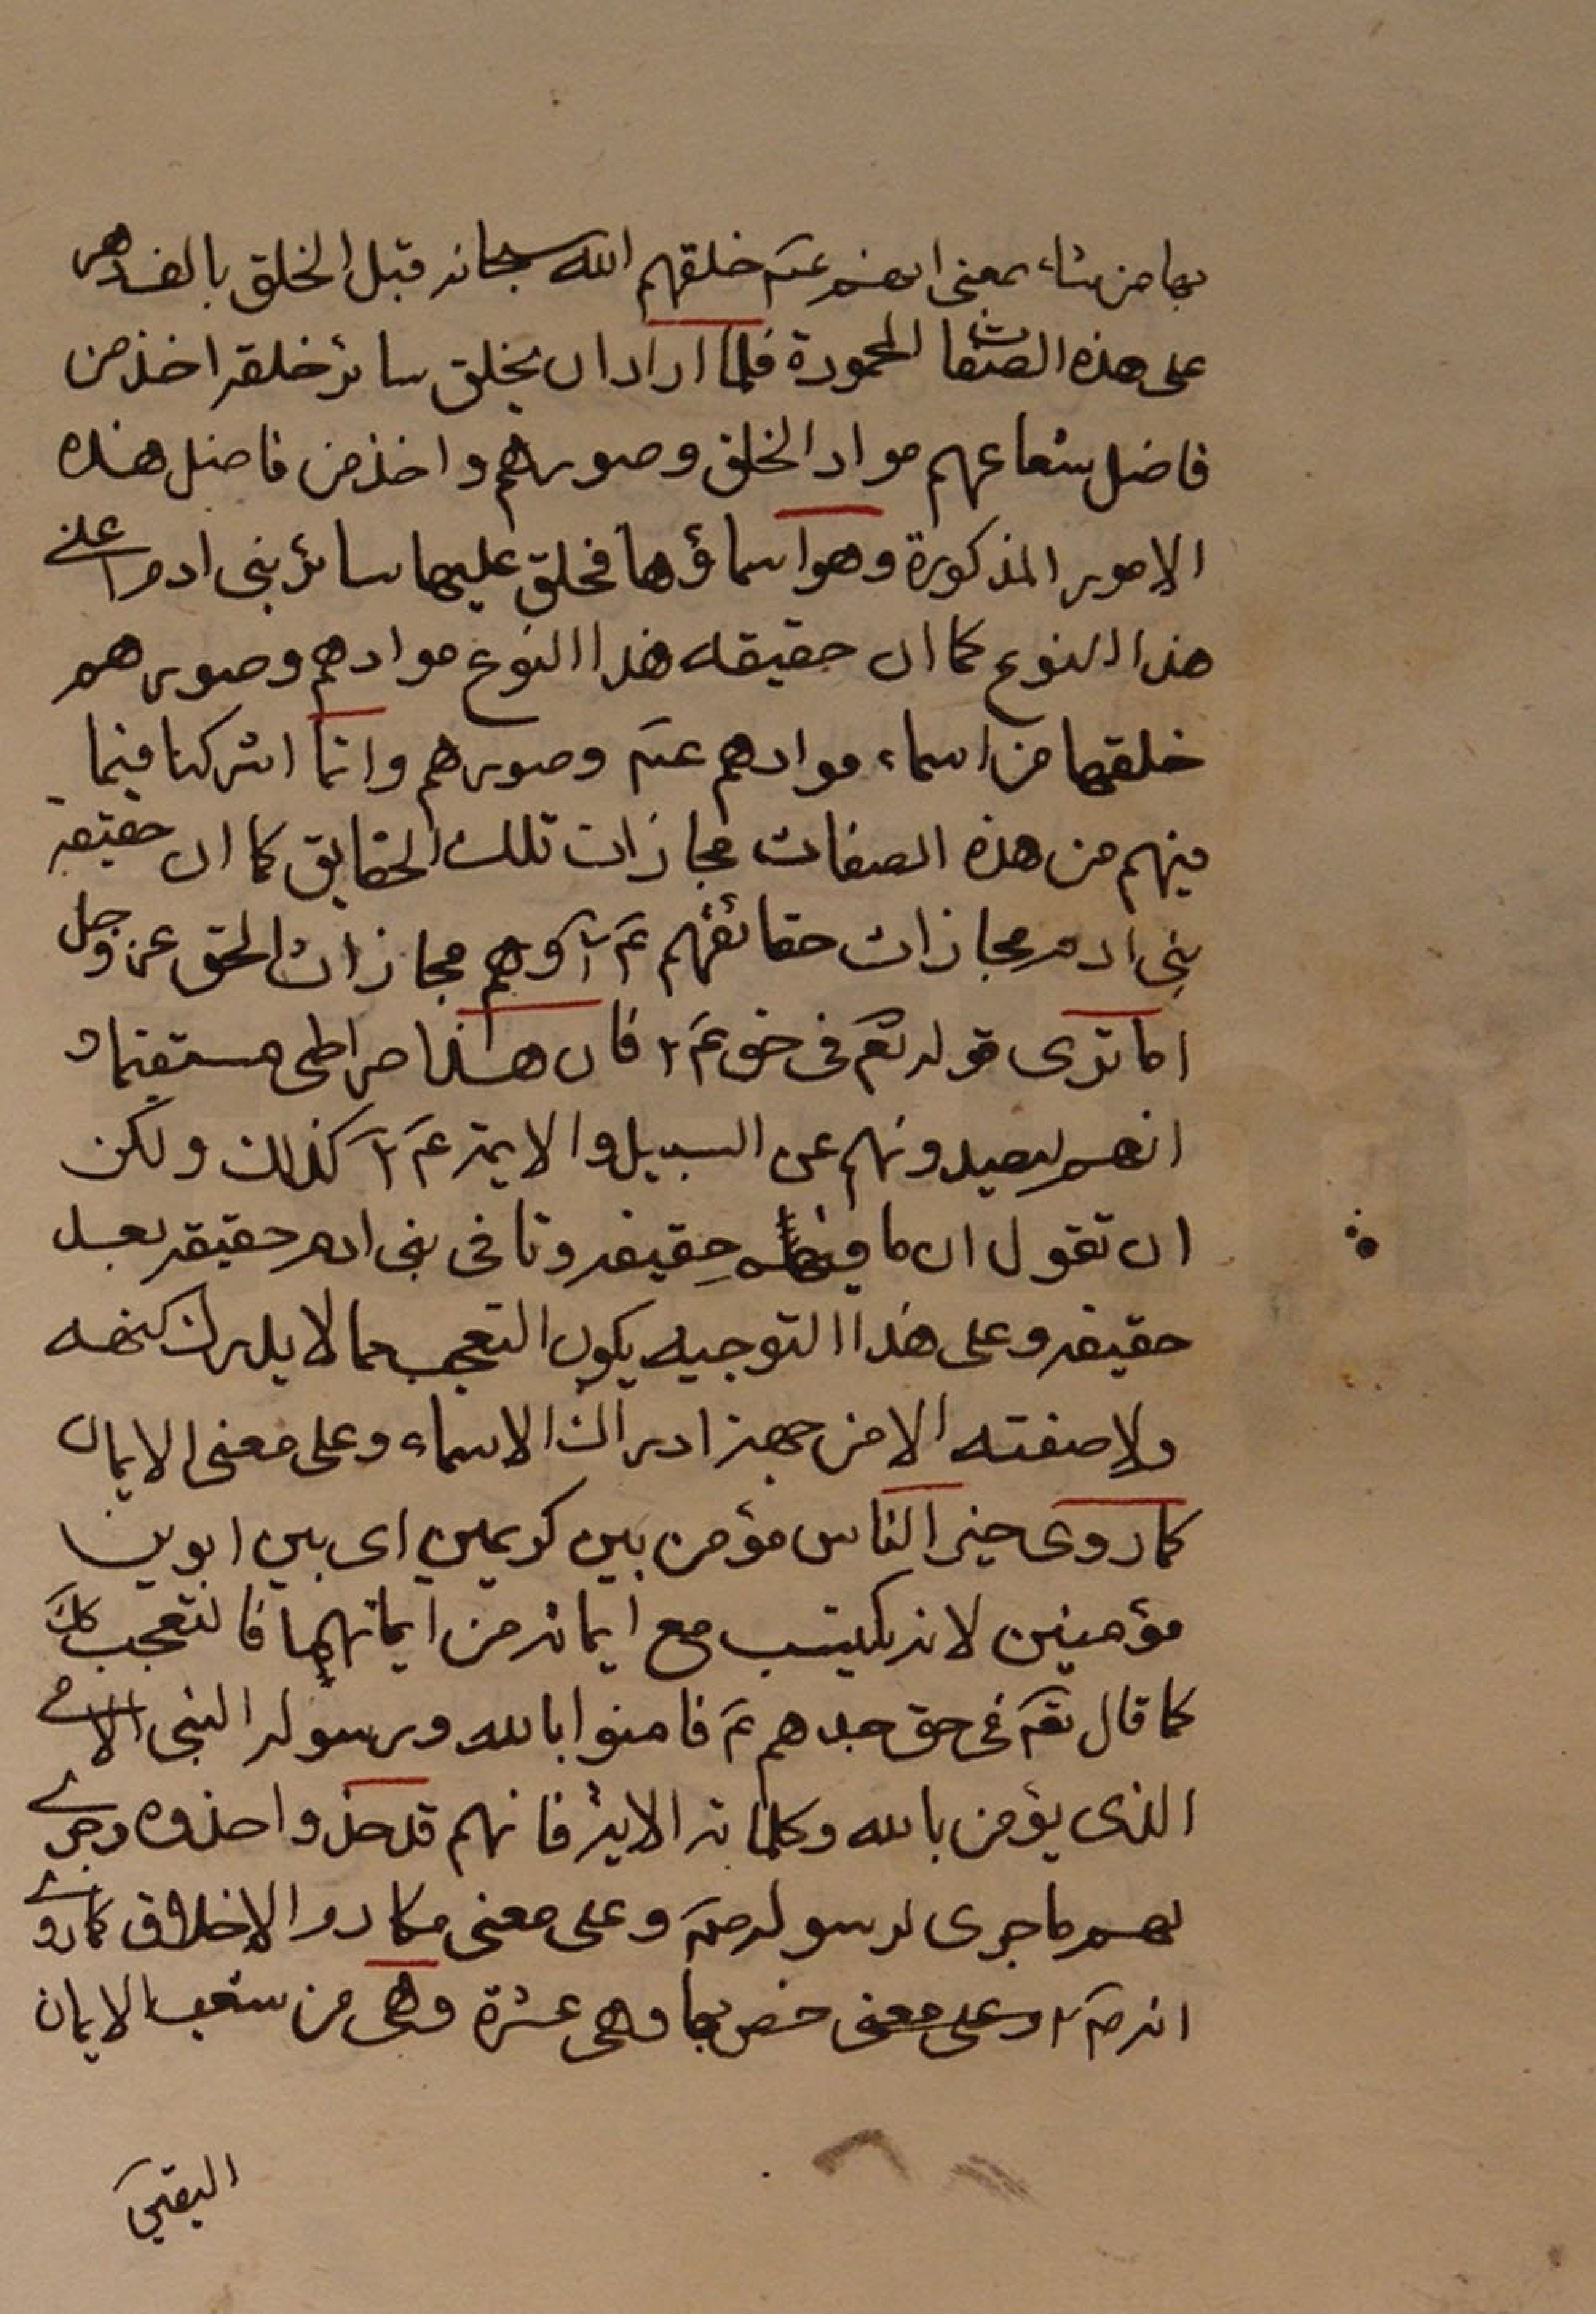 بها من شاء بمعنى انهم ع‍م خلقهم الله سبحانه قبل الخلق بالف دهر
على هذه الصفات المحمودة فلما اراد ان يخلق سائر خلقه اخذ من
فاضل شعاعهم مواد الخلق وصورهم واخذ من فاضل هذه
الامور المذكورة وهو اسماؤها فخلق عليهما سائر بنى ادم اعنے
هذا النوع كما ان حقيقه هذا النوع موادهم وصورهم
خلقهما من اسماء موادهم ع‍م وصورهم وانما اشركنا فيما
فيهم من هذه الصفات مجازات تلك الحقايق كما ان حقيقة
بنى ادم مجازات حقائقهم ع‍م وهم مجازات الحق عز وجل
اما ترى قوله تعم فى حق ع‍م فان هذا صراطى مستقيما و
انهم ليصدونهم عن السبيل والايمة ع‍م كذلك ولكن
ان تقول ان ما فيهم حقيقه وما فى بنى ادم حقيقه بعد
حقيقه وعلى هذا التوجيه يكون التعجب مما لا يدرك كنهه
ولا صفته الا من جهة ادراك الاسماء وعلى معنى الايمان
كما روى خير الناس مؤمن بين كريمين اى بين ابوين
مؤمنين لانه يكتسب مع ايمانه من ايمانهما فالتعجب كك
كما قال تعم فى حق جدهم ع‍م فامنوا بالله ورسوله النبى الامے
الذى يؤمن بالله وكلماته الاية فانهم قد حذوا حذوه وجرے
لهم ما جرى لرسوله ص‍م وعلى معنى مكارم الاخلاق كما روے
انه ص‍م وعلى معنى خص بها وهى عشرة وهى من شعب الايمان
اليقين